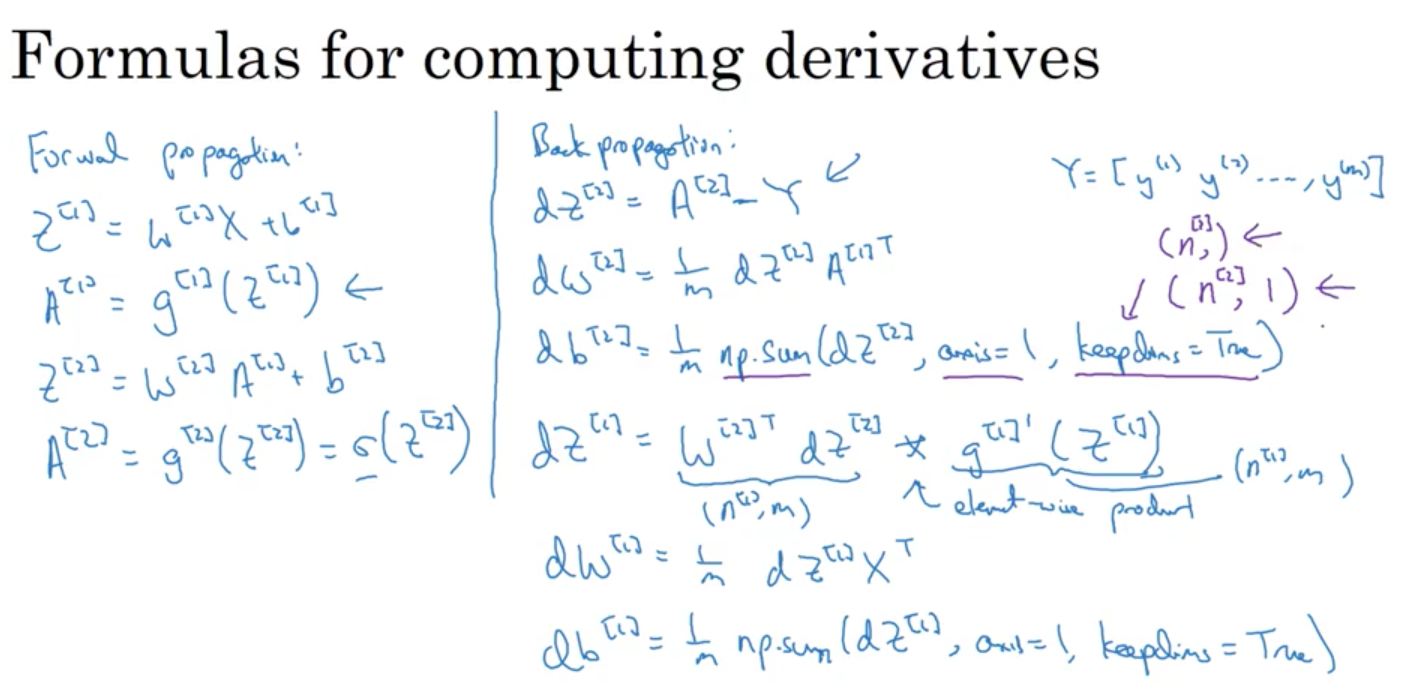 Formulas for computing derivatives
Forwal propagation:
Z^[1] = W^[1] X + b^[1]
A^[1] = g^[1](Z^[1]) ←
Z^[2] = W^[2] A^[1] + b^[2]
A^[2] = g^[2](Z^[2]) = σ(Z^[2])
Back propagation:
dZ^[2] = A^[2] - Y ↙
dW^[2] = 1/m dZ^[2] A^[1]T
db^[2] = 1/m np.sum(dZ^[2], axis=1, keepdims=True)
dZ^[1] = W^[2]T dZ^[2] * g^[1]'(Z^[1])
(n^[1], m) ↖ element-wise product (n^[1], m)
dW^[1] = 1/m dZ^[1] X^T
db^[1] = 1/m np.sum(dZ^[1], axis=1, keepdims=True)
Y = [y^(1) y^(2) ...., y^(m)]
(n^[2],) ←
↓ (n^[2], 1) ←